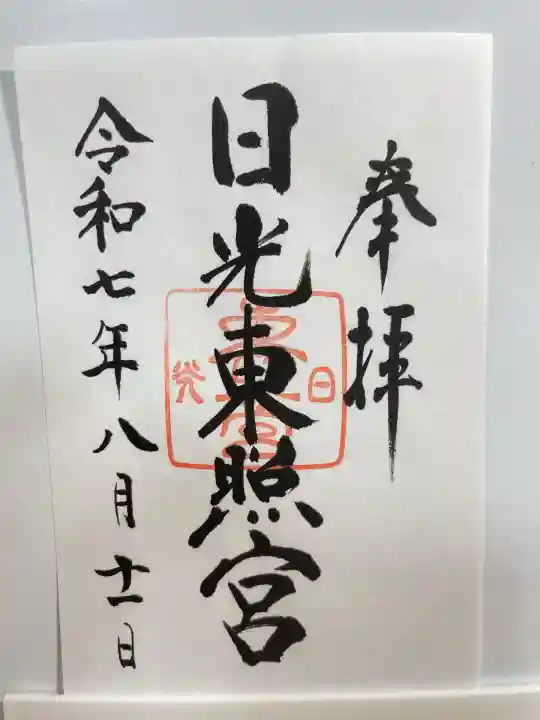 奉拝
日光東照宮
令和七年八月十一日
日
光